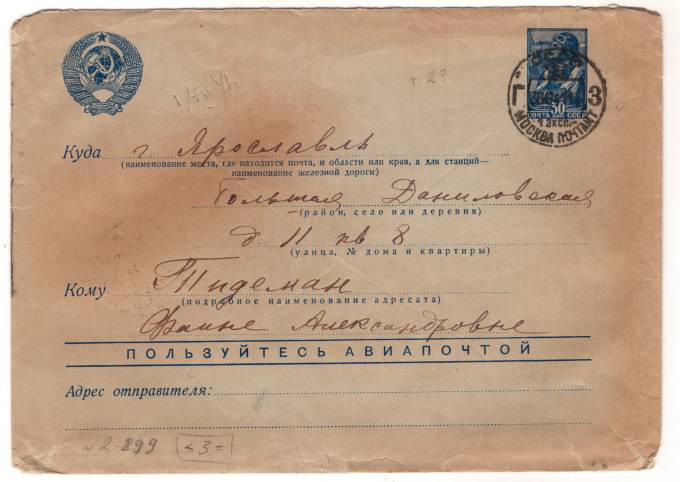 т. 29
50
ПОЧТА СССР
Г
3
МОСКВА ПОЧТАМТ
Куда г. Ярославль
(наименование места, где находится почта, и области или края, а для станций—
наименование железной дороги)
Большая Даниловская
(район, село или деревня)
д 11 кв 8
(улица, № дома и квартиры)
Кому Тидеман
(подробное наименование адресата)
Фаине Александровне
ПОЛЬЗУЙТЕСЬ АВИАПОЧТОЙ
Адрес отправителя:
№2-899 <3=